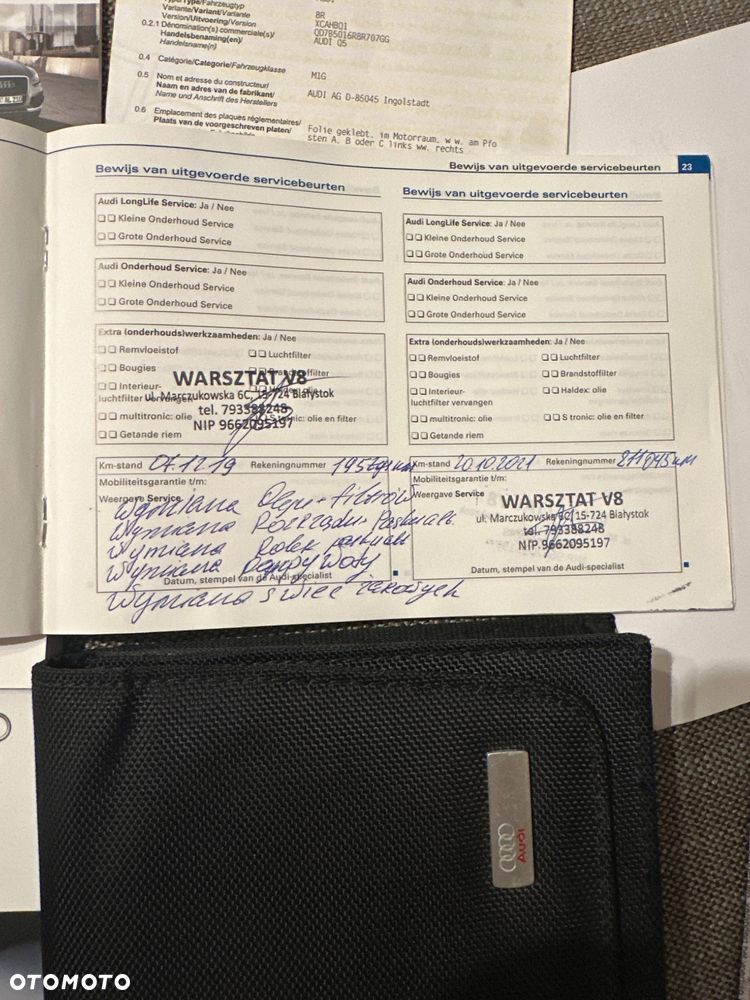 Type/Type/Fahrzeugtyp
8R
Variante/Variant/Variante
XCAHBQ1
Version/Uitvoering/Version
QD7B5016R8R707GG
0.2.1 Dénomination(s) commerciale(s)/
Handelsbenaming(en)/
AUDI Q5
Handelsname(n)
0.4 Catégorie/Categorie/Fahrzeugklasse
M1G
0.5 Nom et adresse du constructeur/
Naam en adres van de fabrikant/
Name und Anschrift des Herstellers
AUDI AG D-85045 Ingolstadt
0.6 Emplacement des plaques réglementaires/
Plaats van de voorgeschreven platen/
Folie geklebt. im Motorraum, w w. am Pfo
sten A, B oder C links ww. rechts
Bewijs van uitgevoerde servicebeurten
Audi LongLife Service: Ja / Nee
Kleine Onderhoud Service
Grote Onderhoud Service
Audi Onderhoud Service: Ja / Nee
Kleine Onderhoud Service
Grote Onderhoud Service
Extra (onderhouds)werkzaamheden: Ja / Nee
Remvloeistof Luchtfilter
Bougies Brandstoffilter
Interieur- Haldex: olie
luchtfilter vervangen
multitronic: olie S tronic: olie en filter
Getande riem
WARSZTAT V8
ul. Marczukowska 6C, 15-724 Białystok
tel. 793388248
NIP 9662095197
Km-stand 07.12.19 Rekeningnummer
Mobiliteitsgarantie t/m:
Weergave Service
Wymiana Oleju + filtrów
Wymiana Rozrządu + Paska
Wymiana Rolek paska
Wymiana Pompy Wody
Datum, stempel van de Audi-specialist
Wymiana świec żarowych
Bewijs van uitgevoerde servicebeurten 23
Bewijs van uitgevoerde servicebeurten
Audi LongLife Service: Ja / Nee
Kleine Onderhoud Service
Grote Onderhoud Service
Audi Onderhoud Service: Ja / Nee
Kleine Onderhoud Service
Grote Onderhoud Service
Extra (onderhouds)werkzaamheden: Ja / Nee
Remvloeistof Luchtfilter
Bougies Brandstoffilter
Interieur- Haldex: olie
luchtfilter vervangen
multitronic: olie S tronic: olie en filter
Getande riem
Km-stand 20.10.2021 Rekeningnummer 211045 km
Mobiliteitsgarantie t/m:
Weergave Service
WARSZTAT V8
ul. Marczukowska 6C, 15-724 Białystok
tel. 793388248
NIP 9662095197
Datum, stempel van de Audi-specialist
Audi
OTOMOTO